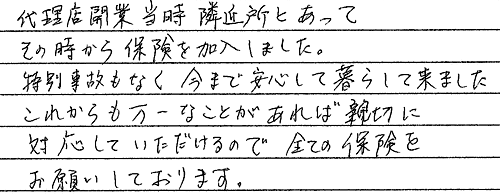 代理店開業当時 隣近所とあって
その時から保険を加入しました。
特別事故もなく 今まで安心して暮らして来ました
これからも万一なことがあれば 親切に
対応していただけるので 全ての保険を
お願いしております。